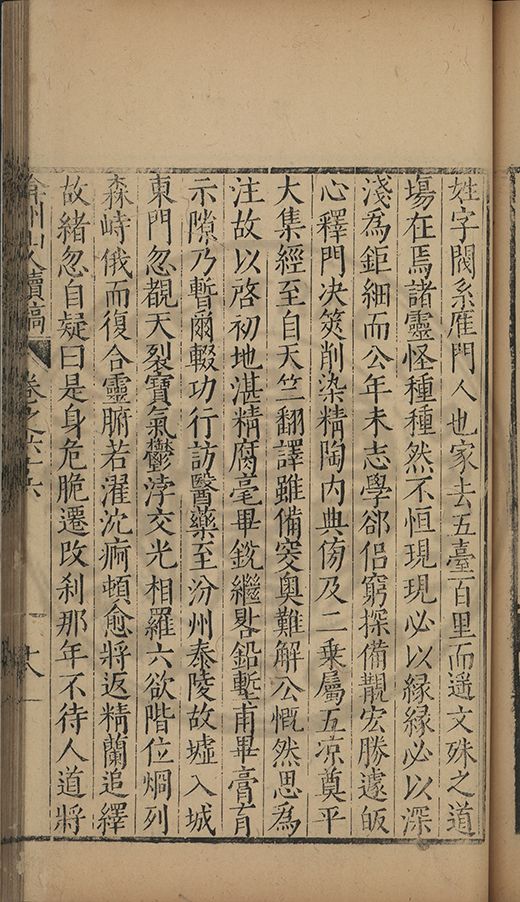 姓字閥系雁門人也家去五臺百里而遥文殊之道
場在焉諸靈怪種種然不恒現現必以緣緣必以深
淺為鉅細而公年未志學郤侣窮探備覩宏勝遽皈
心釋門决筴削染精陶内典傍及二乗屬五凉奠平
大集經至自天竺翻譯雖備窔奥難解公慨然思為
注故以啓初地湛精腐毫畢銳繼晷鉛塹甫畢膏肓
示隙乃暫爾輟功行訪醫藥至汾州秦陵故墟入城
東門忽覩天裂寶氣鬱浡交光相羅六欲階位烱列
森峙俄而復合靈腑若濯沈痾頓愈將返精蘭追繹
故緒忽自疑曰是身危脆遷改刹那年不待人道將
弇州山人續稿
卷之六十六
十八